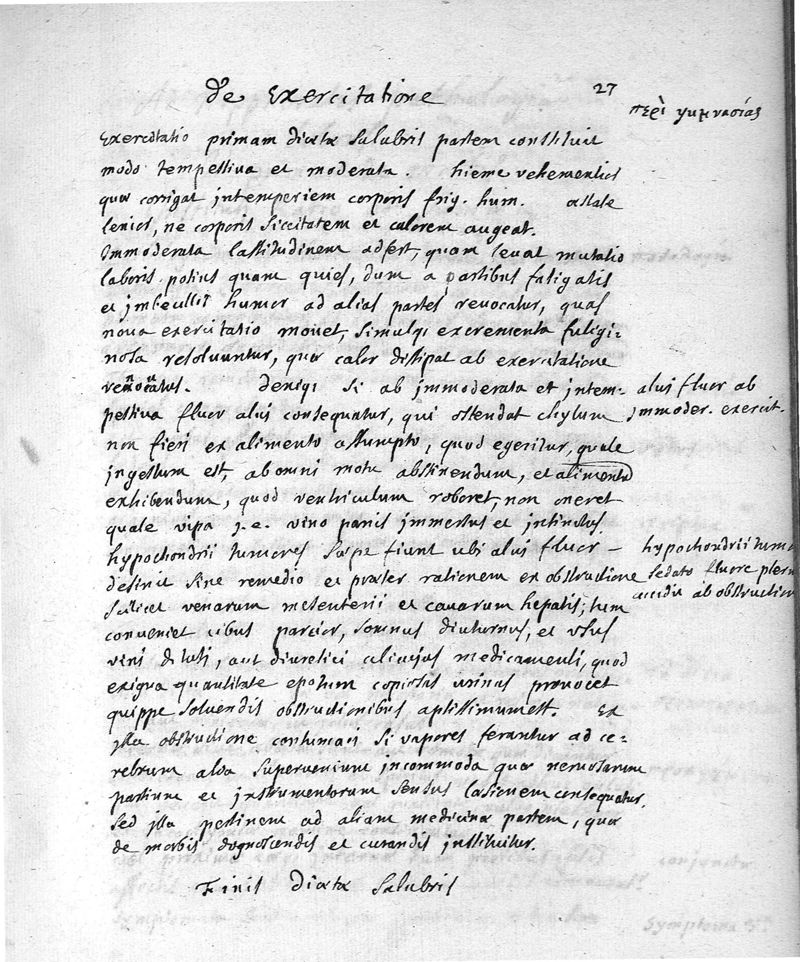 de Exercitatione
27
περὶ γυμνασίας
Exercitatio primam diætæ salubris partem constituit
modo tempestiva et moderata. hieme vehementior
quæ corrigat intemperiem corporis frig. hum. æstate
lenior, ne corporis siccitatem et calorem augeat.
Immoderata lassitudinem adfert, quam levat mutatio
laboris potius quam quies, dum a partibus fatigatis
et imbecillis humor ad alias partes revocatur, quas
nova exercitatio movet, simulqi excrementa fuligi-
nosa resolvuntur, quæ calor dissipat ab exercitatione
deniqi si ab immoderata et intem-
pestiva fluor alvi consequatur, qui ostendat chylum
non fieri ex alimento assumpto, quod egeritur, quale
ingestum est, ab omni motu abstinendum, et alimento
exhibendum, quod ventriculum roboret, non oneret
quale vipa i.e. vino panis immersus et intinctus.
hypochondrii tumores sæpe fiunt ubi alvi fluor –
desinit sine remedio et præter rationem ex obstructione
scilicet venarum mesenterii et cavarum hepatis; tum
conveniet cibus parcior, somnus diuturnus, et usus
vini diluti, aut diuretici alicujus medicamenti, quod
exigua quantitate epotum copiosas urinas provocet
quippe solvendis obstructionibus aptissimum est. Ex
illa obstructione contumaci si vapores ferantur ad ce-
rebrum alia superveniunt incommoda quæ nervosarum
partium et instrumentorum sensus læsionem consequatur.
sed illa pertinent ad aliam medicinæ partem, quæ
de morbis dignoscendis et curandis instituitur.
Finis diætæ salubris
alvi fluor ab
immoder. exercit.
hypochondrii tumo
sedato fluore pleru
accidit ab obstruction